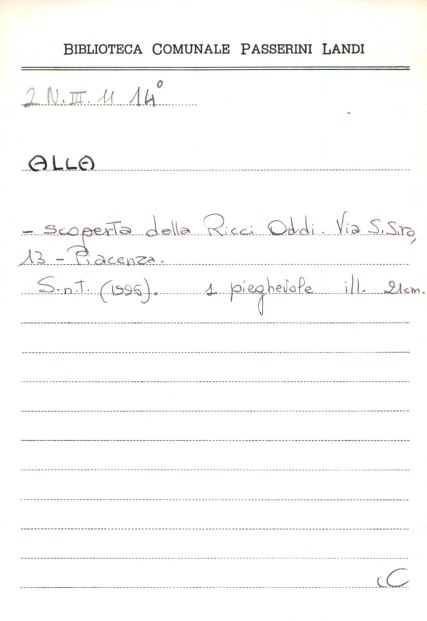 BIBLIOTECA COMUNALE PASSERINI LANDI
2 N. III. 11 14°
ALLA
- scoperta della Ricci Oddi. Via S. Siro,
13 - Piacenza.
S.n.t. (1996). 1 pieghevole ill. 21cm.